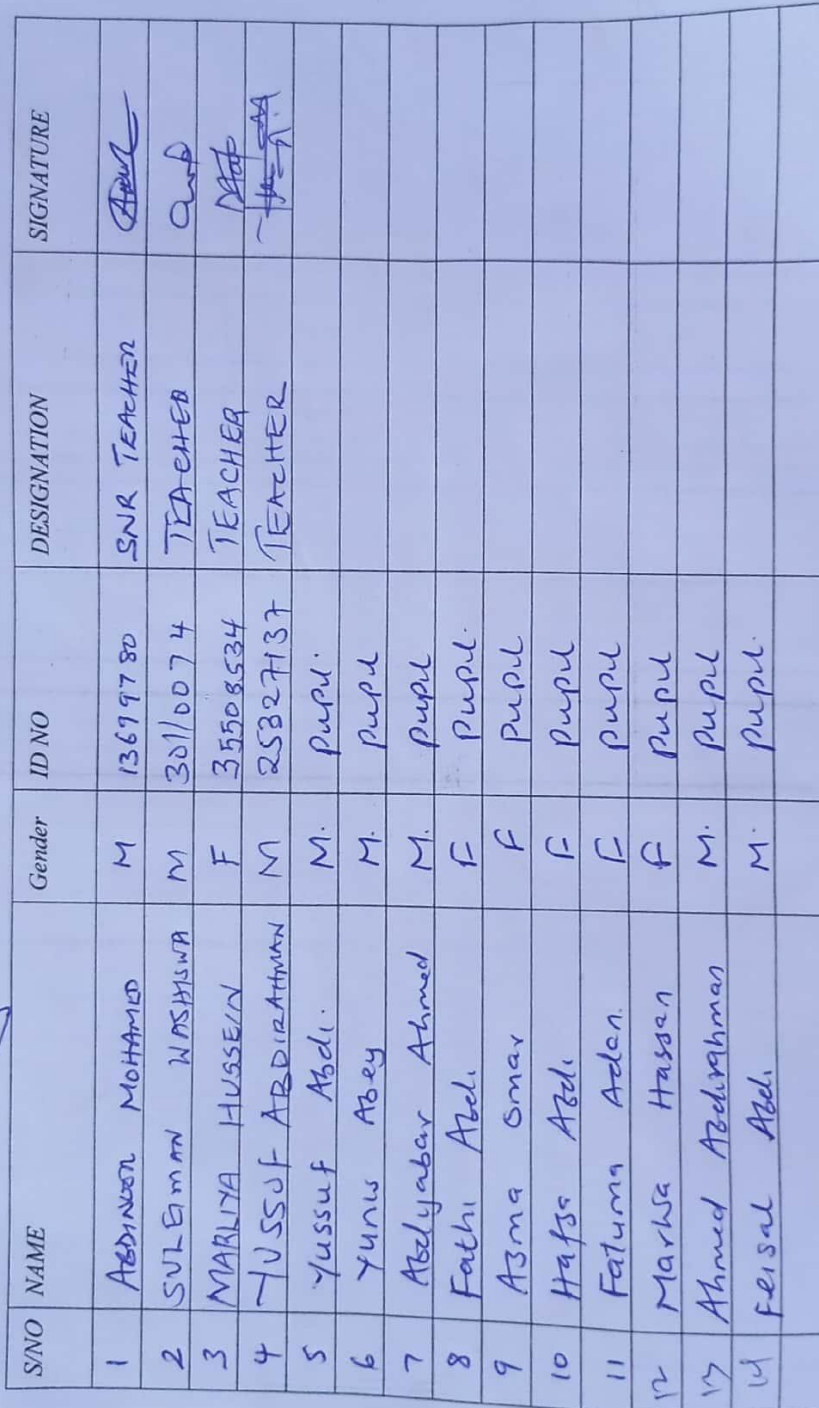 S/NO NAME Gender ID NO DESIGNATION SIGNATURE
1 ABDINOOR MOHAMED M 13699780 SNR TEACHER
2 SULEIMAN WASHISWA M 30110074 TEACHER
3 MARLIYA HUSSEIN F 35508534 TEACHER
4 YUSSUF ABDIRAHMAN M 25327137 TEACHER
5 Yussuf Abdi. M. pupil.
6 Yunis Abey M. pupil
7 Abdiyabar Ahmed M. pupil
8 Fathi Abdi F pupil.
9 Asma Omar F pupil
10 Hafsa Abdi F pupil
11 Fatuma Aden. F pupil
12 Hassan F pupil
13 Ahmed Abdirahman M. pupil
14 Feisal Abdi M. pupil.